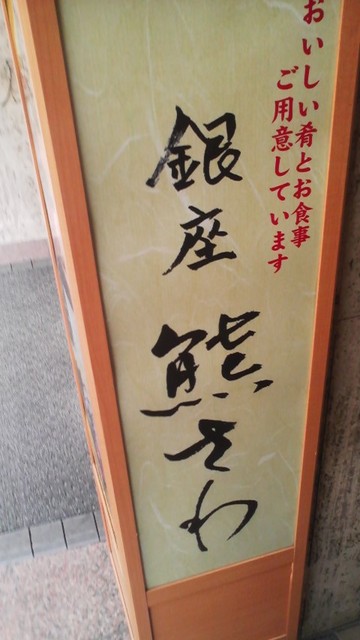 おいしい肴とお食事
ご用意しています
銀座
熊さわ